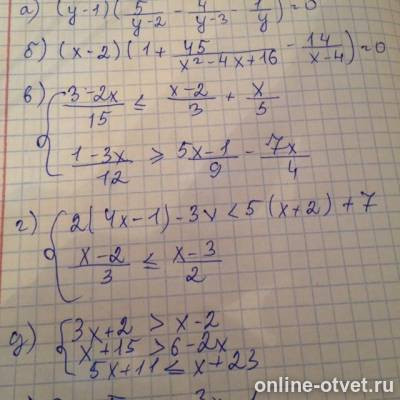 а) (y-1)(5/(y-2) - 4/(y-3) - 1/y)=0
б) (x-2)(1+ 45/(x²-4x+16) - 14/(x-4))=0
в) { (3-2x)/15 ≤ (x-2)/3 + x/5
(1-3x)/12 ≥ (5x-1)/9 - 7x/4
г) { 2(4x-1)-3x<5(x+2)+7
(x-2)/3 ≤ (x-3)/2
д) { 3x+2 > x-2
x+15 >6-2x
5x+11 ≤ x+23
online-otvet.ru